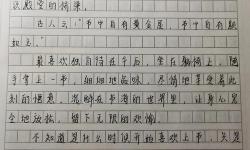 识殿堂的倚靠。
古人云:"书中自有黄金屋,书中自有颜
如玉。"
最喜欢独自待在午后,坐在躺椅上,随
手拿上一书,细细地品味,尽情地享受着此
刻的惬意。沉醉在书海的世界里,让身心完
全地放松,留下无限的欢愉。
不知道是什么时候开始喜欢上书,只是